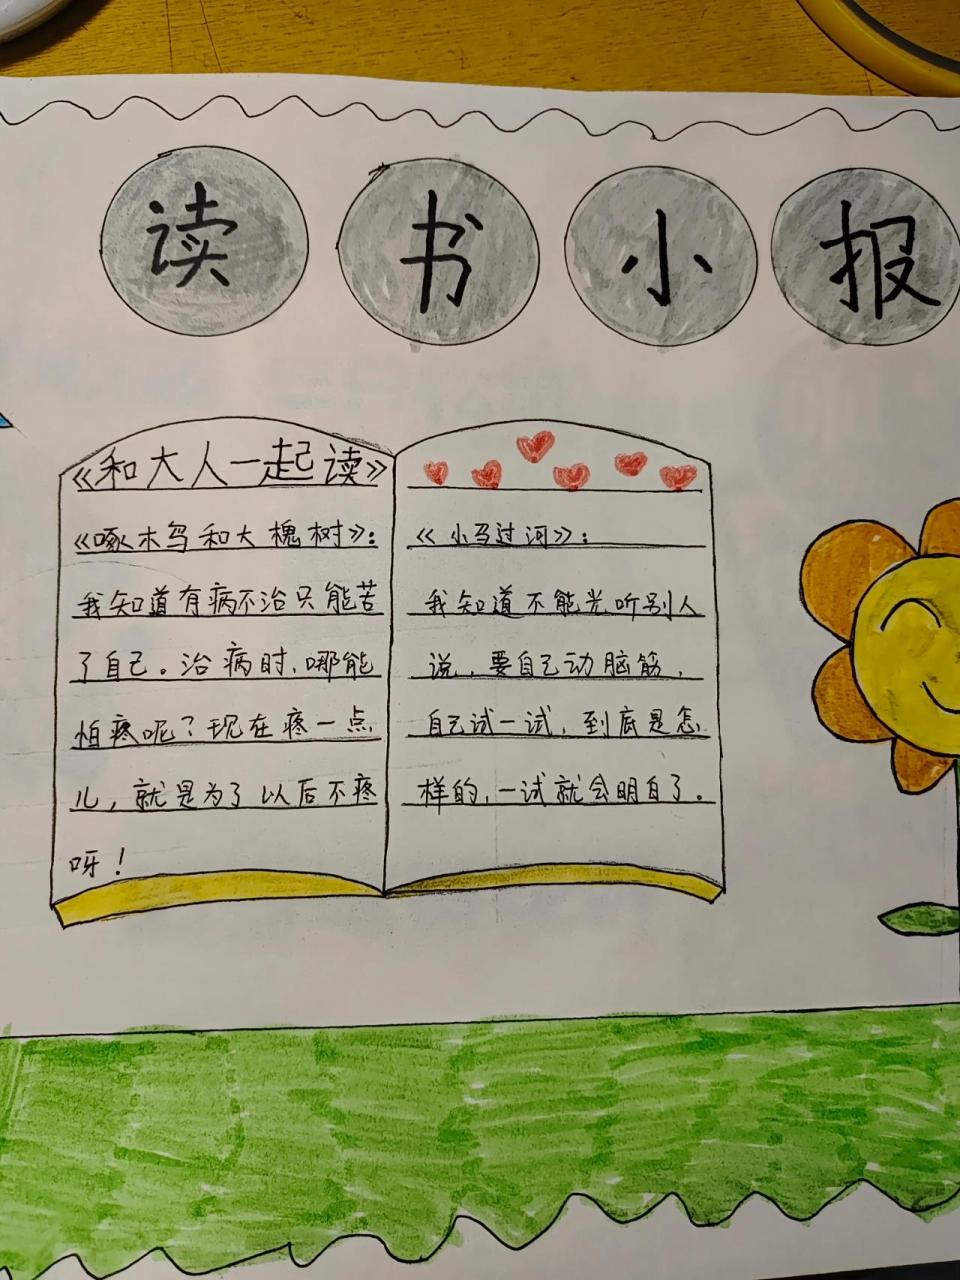 读书小报
《和大人一起读》
《啄木鸟和大槐树》:
我知道有病不治只能苦
了自己。治病时、哪能
怕疼呢?现在疼一点
儿,就是为了以后不疼
呀!
《小马过河》:
我知道不能光听别人
说,要自己动脑筋,
自己试一试,到底是怎
样的,一试就会明白了。